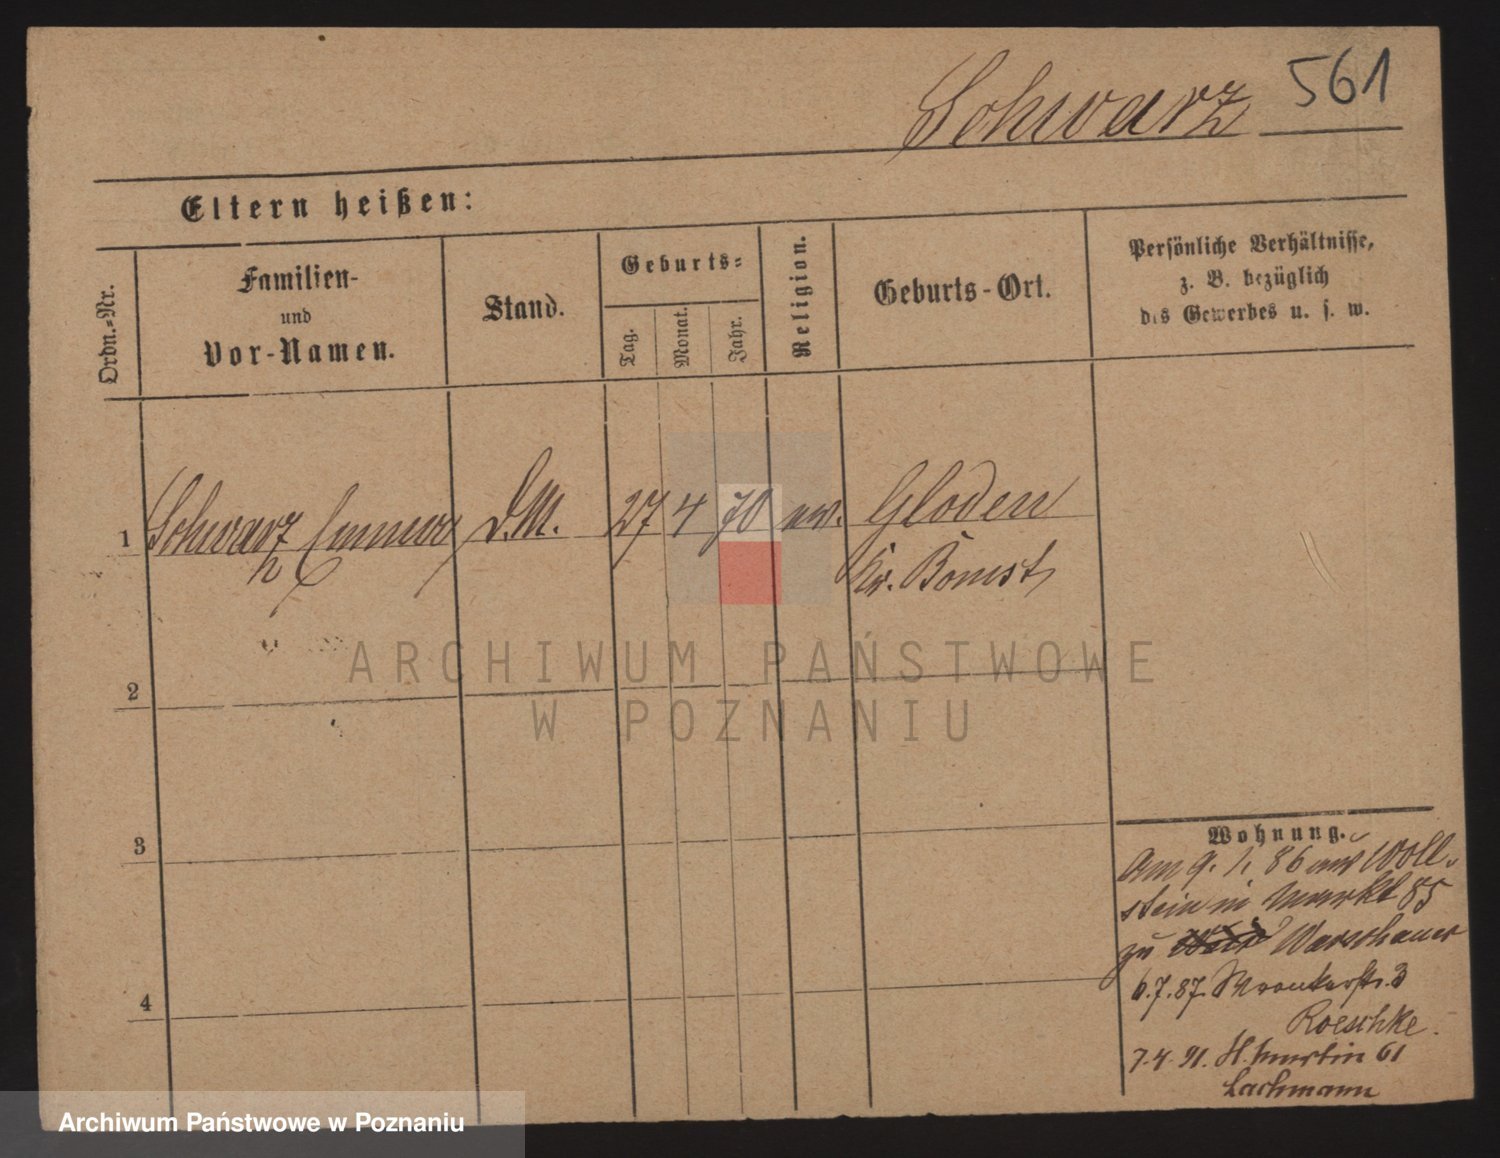 Schwarz 561
Eltern heißen:
Ordn.-Nr.
Familien-
und
Vor-Namen.
Stand.
Geburts-
Tag.
Monat.
Jahr.
Religion.
Geburts-Ort.
Persönliche Verhältnisse,
z. B. bezüglich
des Gewerbes u. s. w.
1 Schwarz Emma D.M. 27 4 70 ev. Gloden
Kr. Bomst
2
3
4
Wohnung.
Am 9. 1. 86 aus Woll-
stein in Markt 85
zu Warschauer
6.7.87. Wronkerstr. 3
Roeschke.
7.4.91. St. Martin 61
Lachmann
ARCHIWUM PAŃSTWOWE
W POZNANIU
Archiwum Państwowe w Poznaniu